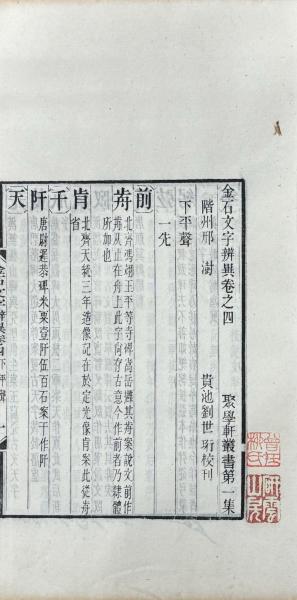 金石文字辨異卷之四　聚學軒叢書第一集
階州邢澍　貴池劉世珩校刊
下平聲
一先
前
歬
北齊馮翊王平等寺碑
說文前作
歬从止在舟上此字尚存古意今作前者乃隸體
所加也
肯
北齊天統三年造像記在於定光像肯案此從歬
省
千
阡
唐尉遲恭碑米粟壹阡伍百石案千作阡
天
金石文字辨異卷四 下平聲 一